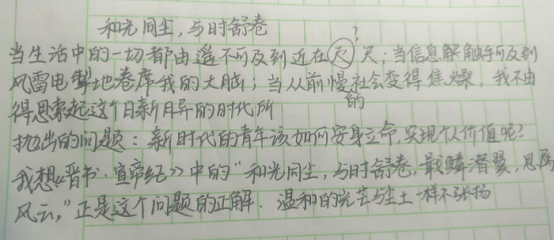 和光同尘,与时舒卷
?
当生活中的一切都由遥不可及到近在尺尺;当信息解触手可及到
风雷电掣地卷席我的大脑;当从前慢社会变得焦燥,我不由
的
得思索起这个日新月异的时代所
抛出的问题:新时代的青年该如何安身立命,实现个人价值呢?
我想《晋书·宣帝纪》中的“和光同尘,与时舒卷,戢鳞潜翼,思属
风云,”正是这个问题的正解.温和的光芒与尘土一样不张扬